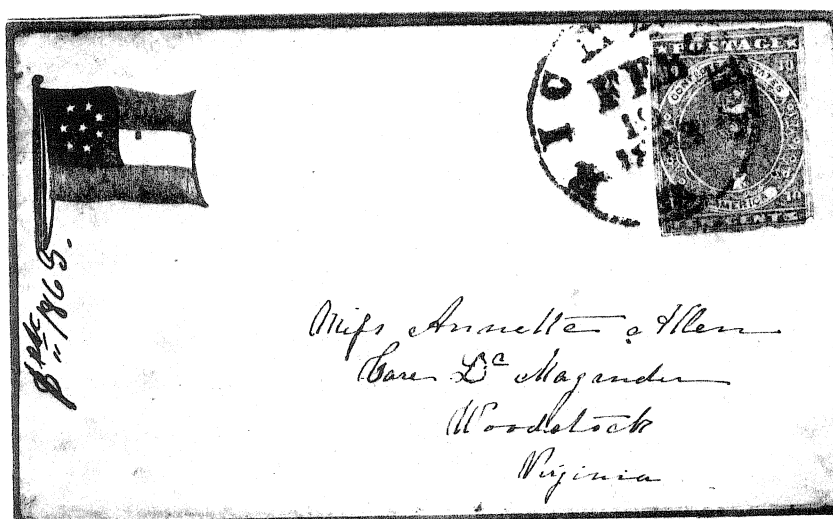 RIC
FEB
POSTAGE
CONFEDERATE STATES
AMERICA
TEN CENTS
1865.
Miss Annette Allen
Care Dr Magruder
Woodstock
Virginia